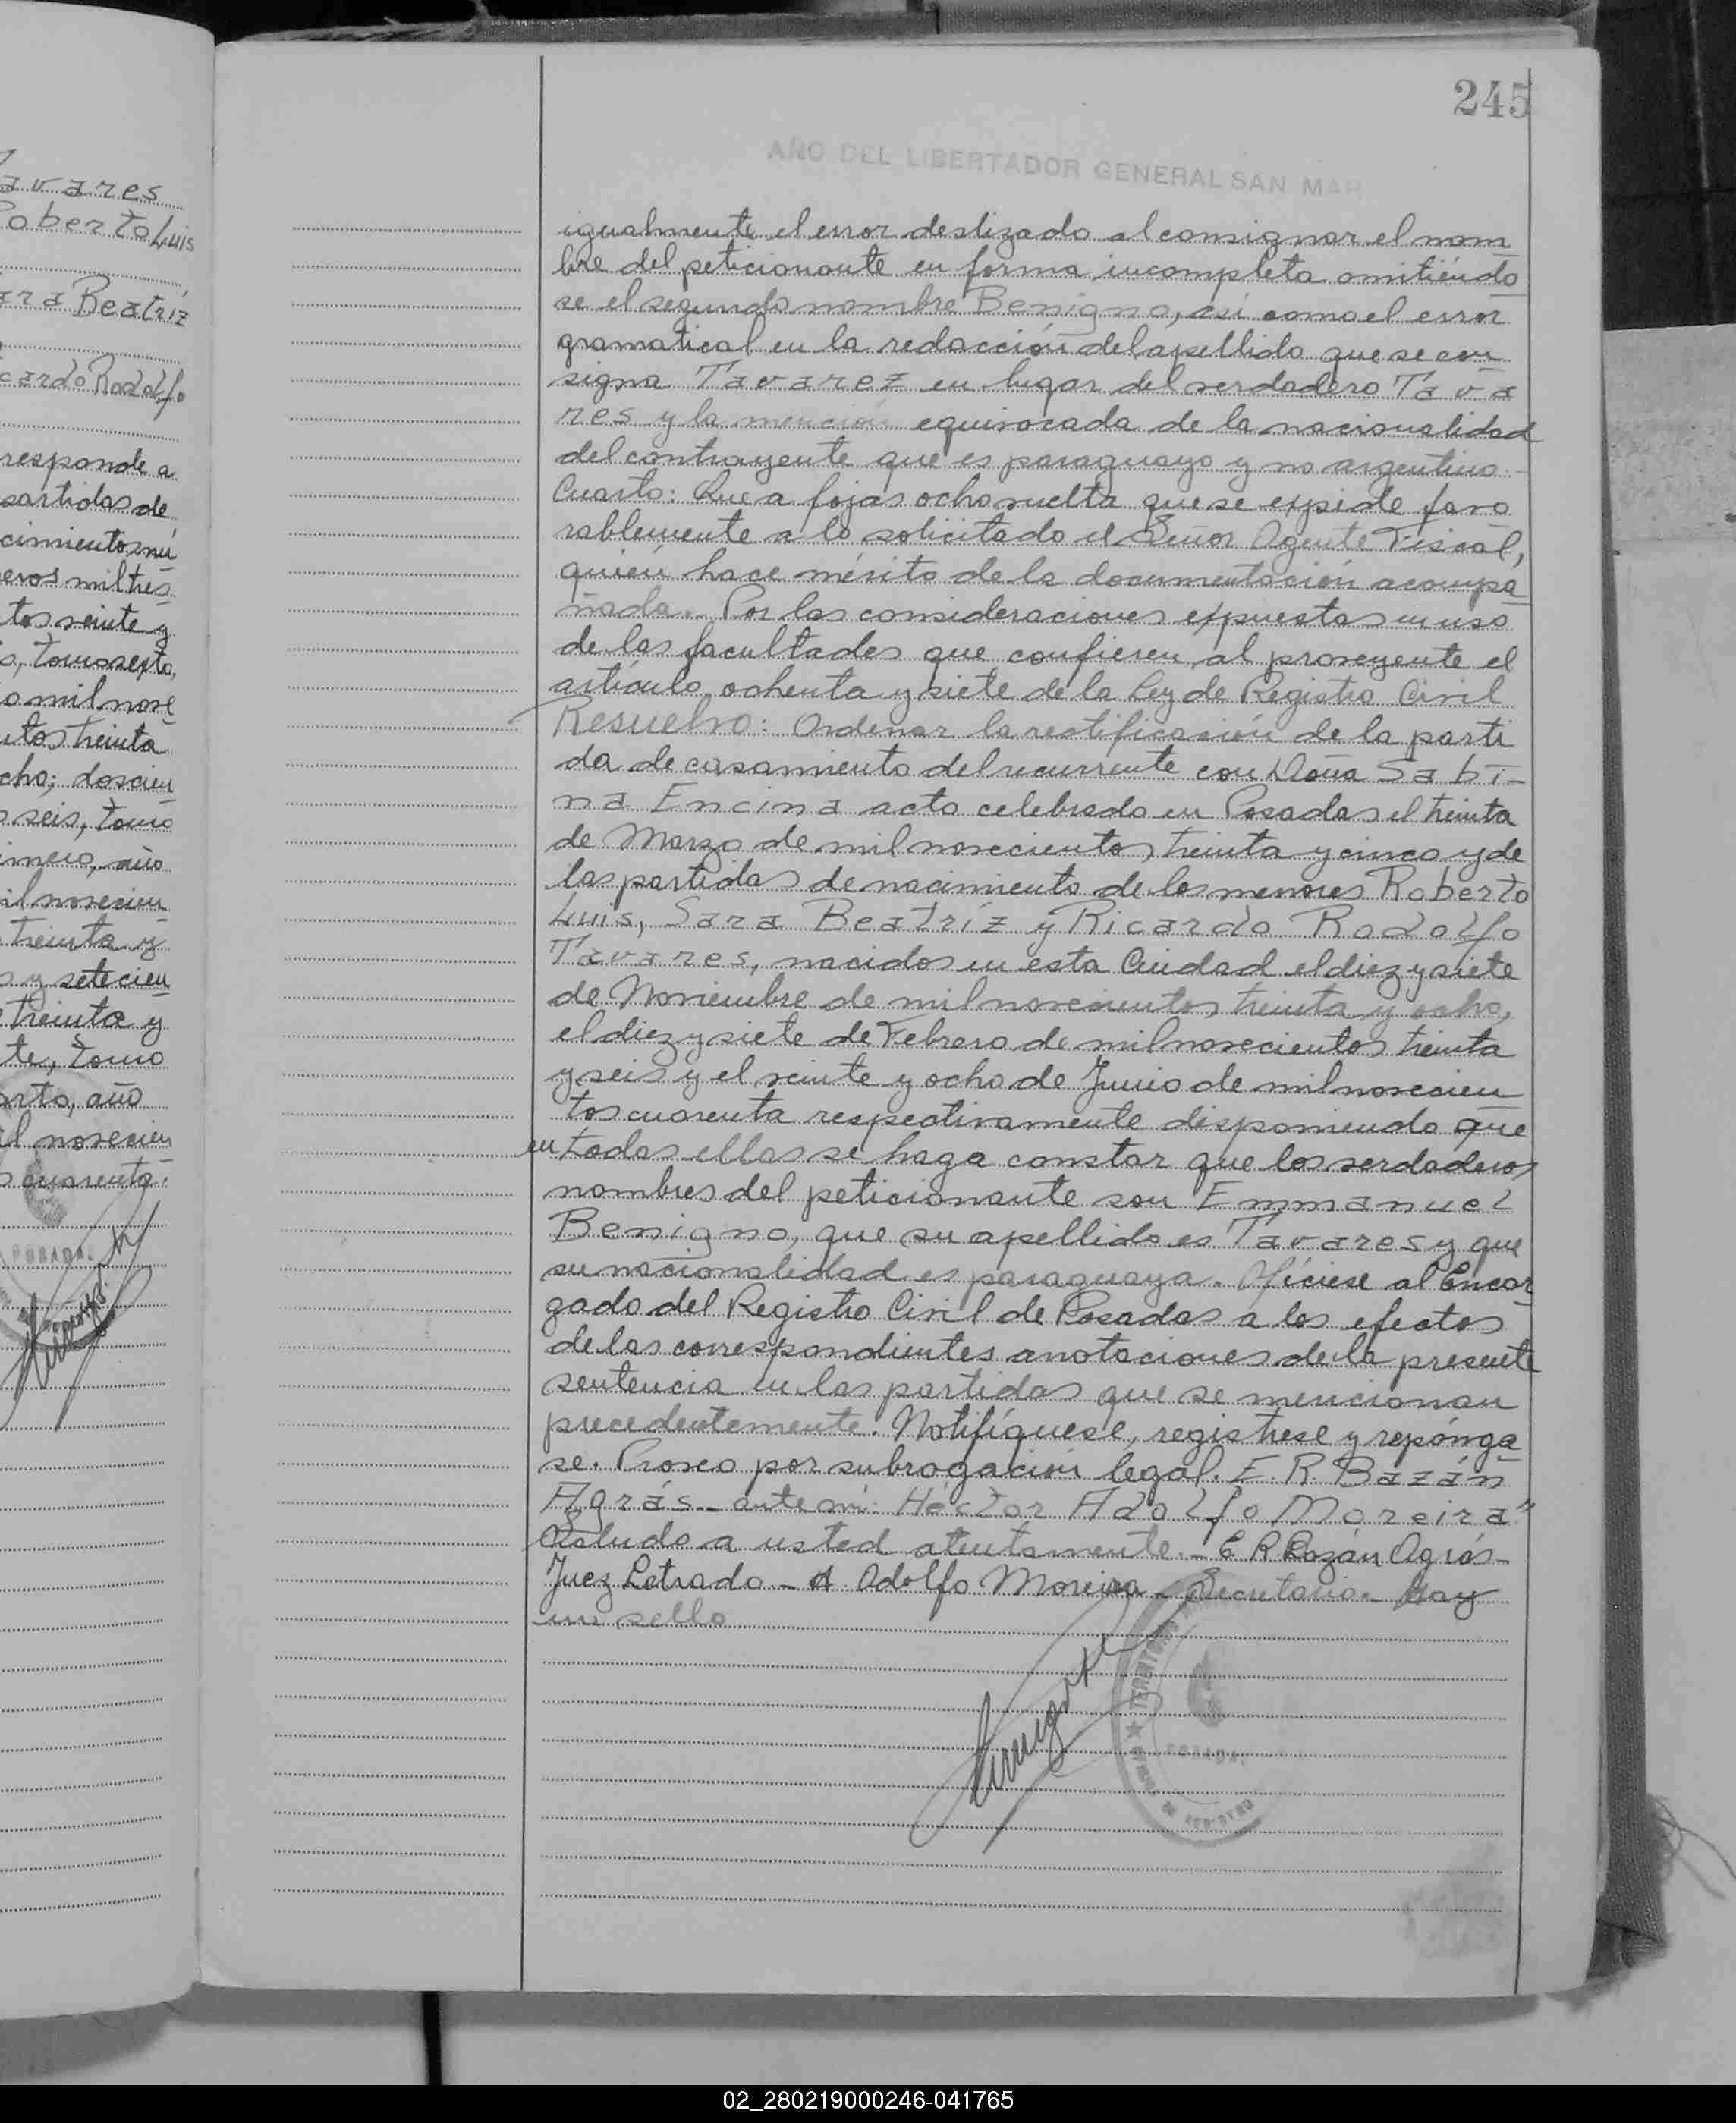 avares
Roberto Luis
ara Beatríz
cardo Rodolfo
responde a
partidas de
cimientos nú
eros mil tres
tos veinte y
o, tomo sexto,
o mil nove
ntos treinta
cho; doscien
s seis, tomo
imero, año
il novecien
treinta y
s y setecien
treinta y
te, tomo
arto, año
il novecien
s cuarenta.
POSADA
245
AÑO DEL LIBERTADOR GENERAL SAN MAR
igualmente el error deslizado al consignar el nom
bre del peticionante en forma incompleta omitiéndo
se el segundo nombre Benigno, así como el error
gramatical en la redacción del apellido que se con
signa Tavarez en lugar del verdadero Tava
res y la mención equivocada de la nacionalidad
del contrayente que es paraguayo y no argentino.-
Cuarto: Que a fojas ocho vuelta que se expide favo
rablemente a lo solicitado el Señor Agente Fiscal,
quién hace mérito de la documentación acompa
ñada.- Por las consideraciones expuestas en uso
de las facultades que confieren al proveyente el
artículo ochenta y siete de la Ley de Registro Civil
Resuelvo: Ordenar la rectificación de la parti
da de casamiento del recurrente con Doña Sabi-
na Encina acto celebrado en Posadas el treinta
de Marzo de mil novecientos treinta y cinco y de
las partidas de nacimiento de los menores Roberto
Luis, Sara Beatríz y Ricardo Rodolfo
Tavares, nacidos en esta Ciudad el diez y siete
de Noviembre de mil novecientos treinta y ocho,
el diez y siete de Febrero de mil novecientos treinta
y seis y el veinte y ocho de Junio de mil novecien
tos cuarenta respectivamente disponiendo que
en todas ellas se haga constar que los verdaderos
nombres del peticionante son Emmanuel
Benigno, que su apellido es Tavares y que
su nacionalidad es paraguaya. Ofíciese al Encar
gado del Registro Civil de Posadas a los efectos
de las correspondientes anotaciones de la presente
sentencia en las partidas que se mencionan
precedentemente. Notifíquese, regístrese y repónga
se. Proveo por subrogación legal. E. R. Bazán
Agrás.- ante mí: Héctor Adolfo Moreira"
Saludo a usted atentamente.- E R Bazán Agrás-
Juez Letrado - H Adolfo Moreira - Secretario.- Hay
un sello
POSADA.
REGISTRO
02_280219000246-041765